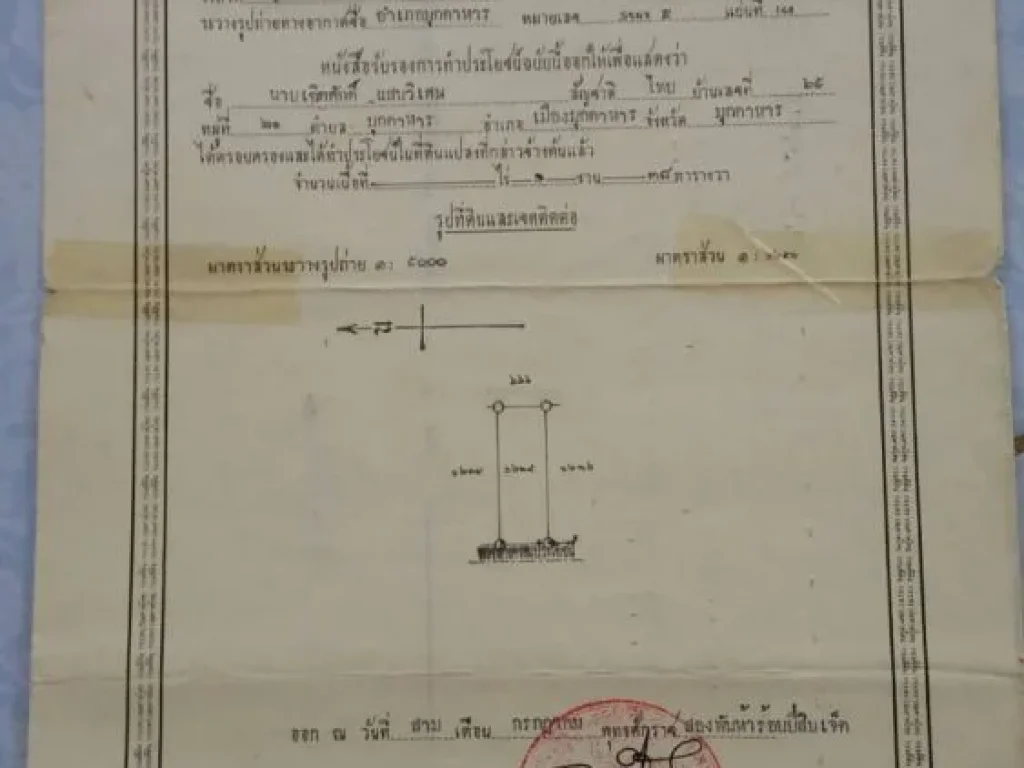 ระวางรูปถ่ายทางอากาศชื่อ อำเภอมุกดาหาร หมายเลข แผ่นที่
หนังสือรับรองการทำประโยชน์ฉบับนี้ออกให้เพื่อแสดงว่า
ชื่อ นายเชิดศักดิ์ แสนวิเศษ สัญชาติ ไทย บ้านเลขที่ ๒๕
หมู่ที่ ๒๑ ตำบล มุกดาหาร อำเภอ เมืองมุกดาหาร จังหวัด มุกดาหาร
ได้ครอบครองและได้ทำประโยชน์ในที่ดินแปลงที่กล่าวข้างต้นแล้ว
จำนวนเนื้อที่ ไร่ ๑ งาน ๓๙ ตารางวา
รูปที่ดินและเขตติดต่อ
มาตราส่วนระวางรูปถ่าย ๑ : ๕๐๐๐ มาตราส่วน ๑ :
น
ออก ณ วันที่ สาม เดือน กรกฎาคม พุทธศักราช สองพันห้าร้อยยี่สิบเจ็ด